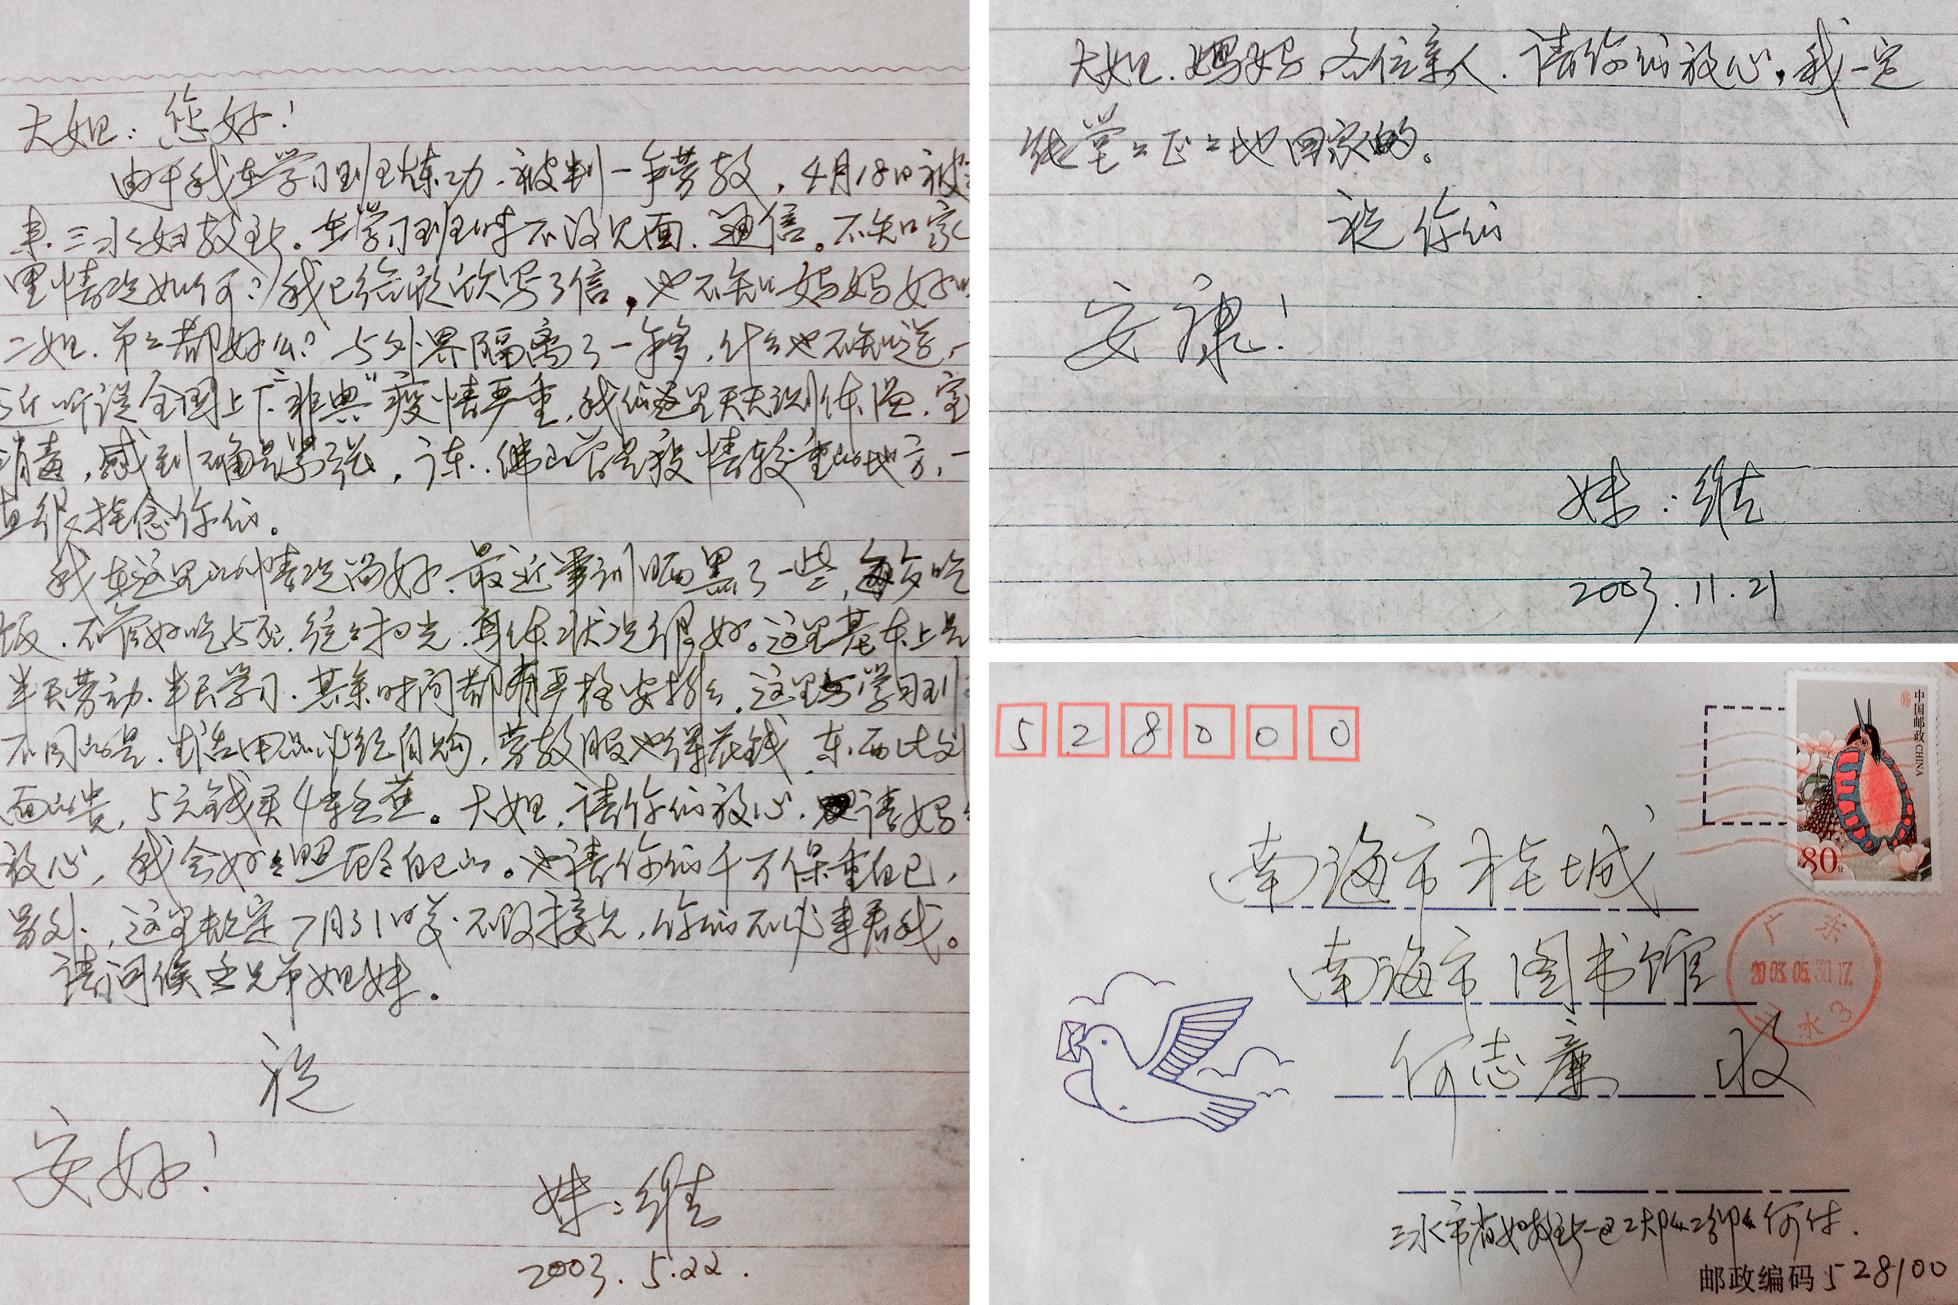 大姐：您好！
由于我在学习班炼功，被判一年劳教，4月18日被
来三水妇教所。在学习班时不设见面、通信。不知家
里情况如何？我已给 写了信，也不知妈妈好
二姐、弟弟都好么？与外界隔离了一年多，什么也不知道，
近听说全国上下"非典"疫情严重，我们这里天天测体温，室
消毒，感到确是紧张，广东、佛山曾是疫情较重的地方，一
直很挂念你们。
我在这里的情况尚好，最近军训晒黑了一些，每次吃
饭，不管好吃与否，统统扫光，身体状况很好。这里基本上是
半天劳动，半天学习，其余时间都有严格安排的。这里与学习班
不同的是，生活用品必须自购，劳教服也得花钱，东西比外
面的贵，5元钱买4 。大姐，请你们放心，请妈
放心，我会好好照顾自己的。也请你们千万保重自己，
另外，这里规定7月31日前不设接见，你们不必来看我。
请问候 兄弟姐妹。
祝
安好！
妹：维
2003.5.22.
大姐、妈妈、各位亲人，请你们放心，我一定
能堂堂正正地回家的。
祝你们
安康！
妹：维
2003.11.21
528000
中国邮政 CHINA
80分
南海市桂城
南海市图书馆
广东
2003.05.30.17
三水 3
何志廉 收
三水市省妇教所 何付.
邮政编码 528100